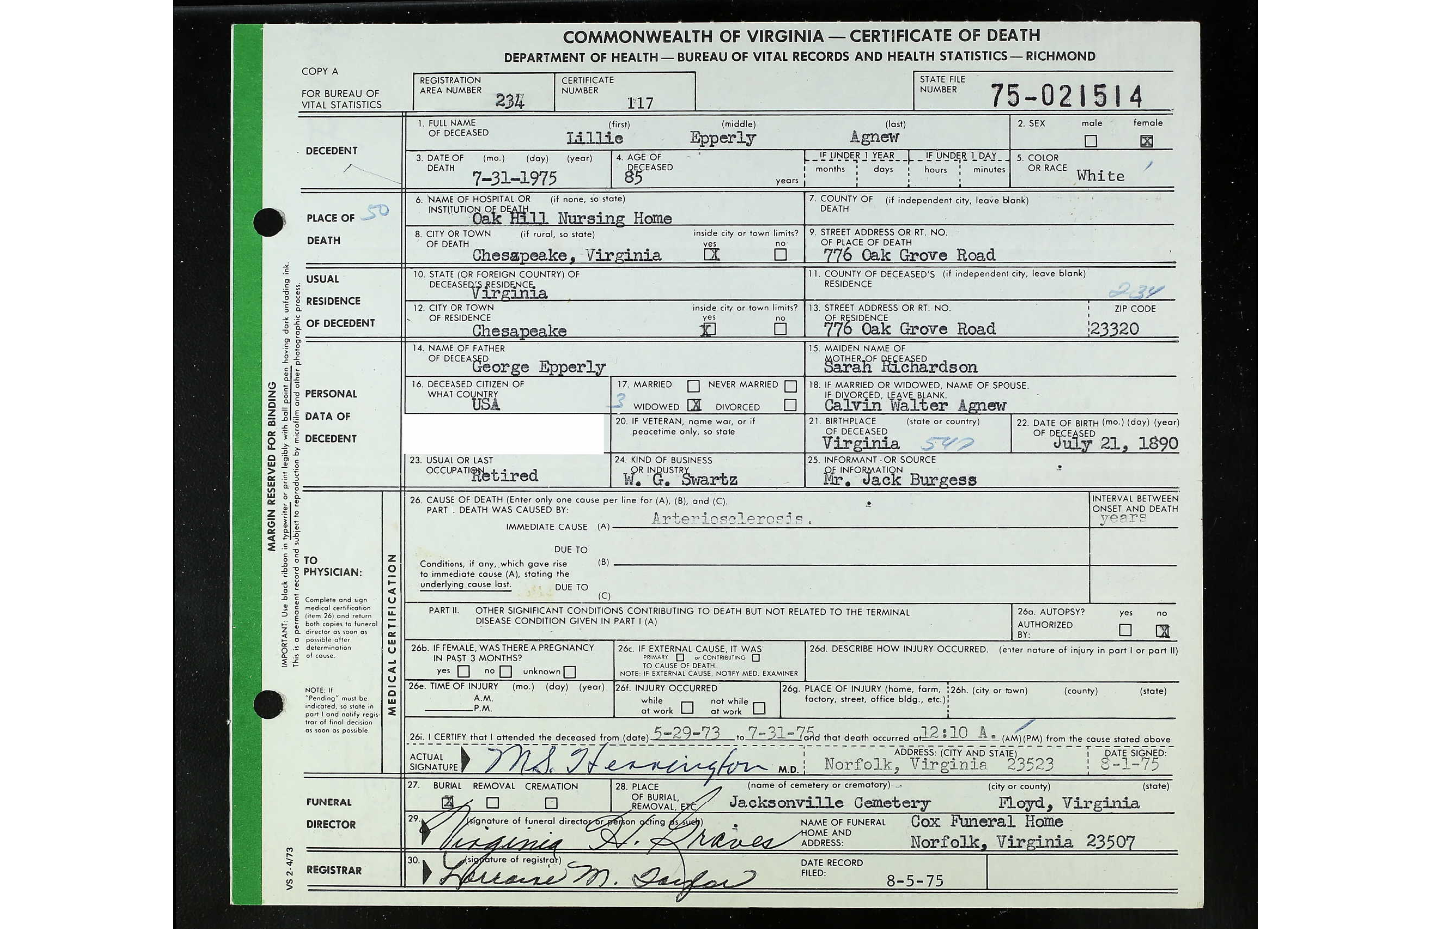 COMMONWEALTH OF VIRGINIA — CERTIFICATE OF DEATH
DEPARTMENT OF HEALTH — BUREAU OF VITAL RECORDS AND HEALTH STATISTICS — RICHMOND
COPY A
FOR BUREAU OF VITAL STATISTICS
REGISTRATION AREA NUMBER 234
CERTIFICATE NUMBER 117
STATE FILE NUMBER 75-021514
DECEDENT
1. FULL NAME OF DECEASED (first) (middle) (last)
Lillie Epperly Agnew
2. SEX male female X
3. DATE OF DEATH (mo.) (day) (year)
7-31-1975
4. AGE OF DECEASED 85 years
IF UNDER 1 YEAR months days
IF UNDER 1 DAY hours minutes
5. COLOR OR RACE White
PLACE OF DEATH 50
6. NAME OF HOSPITAL OR INSTITUTION OF DEATH (if none, so state)
Oak Hill Nursing Home
7. COUNTY OF DEATH (if independent city, leave blank)
8. CITY OR TOWN OF DEATH (if rural, so state) inside city or town limits? yes X no
Chesapeake, Virginia
9. STREET ADDRESS OR RT. NO. OF PLACE OF DEATH
776 Oak Grove Road
USUAL RESIDENCE OF DECEDENT
10. STATE (OR FOREIGN COUNTRY) OF DECEASED'S RESIDENCE
Virginia
11. COUNTY OF DECEASED'S RESIDENCE (if independent city, leave blank)
234
12. CITY OR TOWN OF RESIDENCE inside city or town limits? yes X no
Chesapeake
13. STREET ADDRESS OR RT. NO. OF RESIDENCE ZIP CODE
776 Oak Grove Road 23320
PERSONAL DATA OF DECEDENT
14. NAME OF FATHER OF DECEASED
George Epperly
15. MAIDEN NAME OF MOTHER OF DECEASED
Sarah Richardson
16. DECEASED CITIZEN OF WHAT COUNTRY
USA
17. MARRIED NEVER MARRIED
3 WIDOWED X DIVORCED
18. IF MARRIED OR WIDOWED, NAME OF SPOUSE. IF DIVORCED, LEAVE BLANK.
Calvin Walter Agnew
20. IF VETERAN, name war, or if peacetime only, so state
21. BIRTHPLACE OF DECEASED (state or country)
Virginia 547
22. DATE OF BIRTH (mo.) (day) (year) OF DECEASED
July 21, 1890
23. USUAL OR LAST OCCUPATION
Retired
24. KIND OF BUSINESS OR INDUSTRY
W. G. Swartz
25. INFORMANT - OR SOURCE OF INFORMATION
Mr. Jack Burgess
MARGIN RESERVED FOR BINDING
IMPORTANT: Use black ribbon in typewriter or print legibly with ball point pen having dark unfading ink.
This is a permanent record and subject to reproduction by microfilm and other photographic process.
TO PHYSICIAN:
Complete and sign medical certification (item 26) and return both copies to funeral director as soon as possible after determination of cause.
NOTE: If "Pending" must be indicated, so state in part I and notify registrar of final decision as soon as possible.
MEDICAL CERTIFICATION
26. CAUSE OF DEATH (Enter only one cause per line for (A), (B), and (C).
PART . DEATH WAS CAUSED BY:
IMMEDIATE CAUSE (A) Arteriosclerosis.
INTERVAL BETWEEN ONSET AND DEATH
years
DUE TO
Conditions, if any, which gave rise to immediate cause (A), stating the underlying cause last. (B)
DUE TO
(C)
PART II. OTHER SIGNIFICANT CONDITIONS CONTRIBUTING TO DEATH BUT NOT RELATED TO THE TERMINAL DISEASE CONDITION GIVEN IN PART I (A)
26a. AUTOPSY? yes no X
AUTHORIZED BY:
26b. IF FEMALE, WAS THERE A PREGNANCY IN PAST 3 MONTHS?
yes no unknown
26c. IF EXTERNAL CAUSE, IT WAS PRIMARY or CONTRIBUTING TO CAUSE OF DEATH.
NOTE: IF EXTERNAL CAUSE, NOTIFY MED. EXAMINER
26d. DESCRIBE HOW INJURY OCCURRED. (enter nature of injury in part I or part II)
26e. TIME OF INJURY (mo.) (day) (year)
A.M.
P.M.
26f. INJURY OCCURRED while at work not while at work
26g. PLACE OF INJURY (home, farm, factory, street, office bldg., etc.)
26h. (city or town) (county) (state)
26i. I CERTIFY that I attended the deceased from (date) 5-29-73 to 7-31-75 and that death occurred at 12:10 A. (AM)(PM) from the cause stated above
ACTUAL SIGNATURE M.S. Herrington M.D.
ADDRESS: (CITY AND STATE)
Norfolk, Virginia 23523
DATE SIGNED:
8-1-75
FUNERAL DIRECTOR
27. BURIAL REMOVAL CREMATION
X
28. PLACE OF BURIAL, REMOVAL, ETC. (name of cemetery or crematory) (city or county) (state)
Jacksonville Cemetery Floyd, Virginia
29. (signature of funeral director or person acting as such)
Virginia H. Graves
NAME OF FUNERAL HOME AND ADDRESS:
Cox Funeral Home
Norfolk, Virginia 23507
REGISTRAR
30. (signature of registrar)
Lorraine M. Taylor
DATE RECORD FILED:
8-5-75
VS 2-4/73